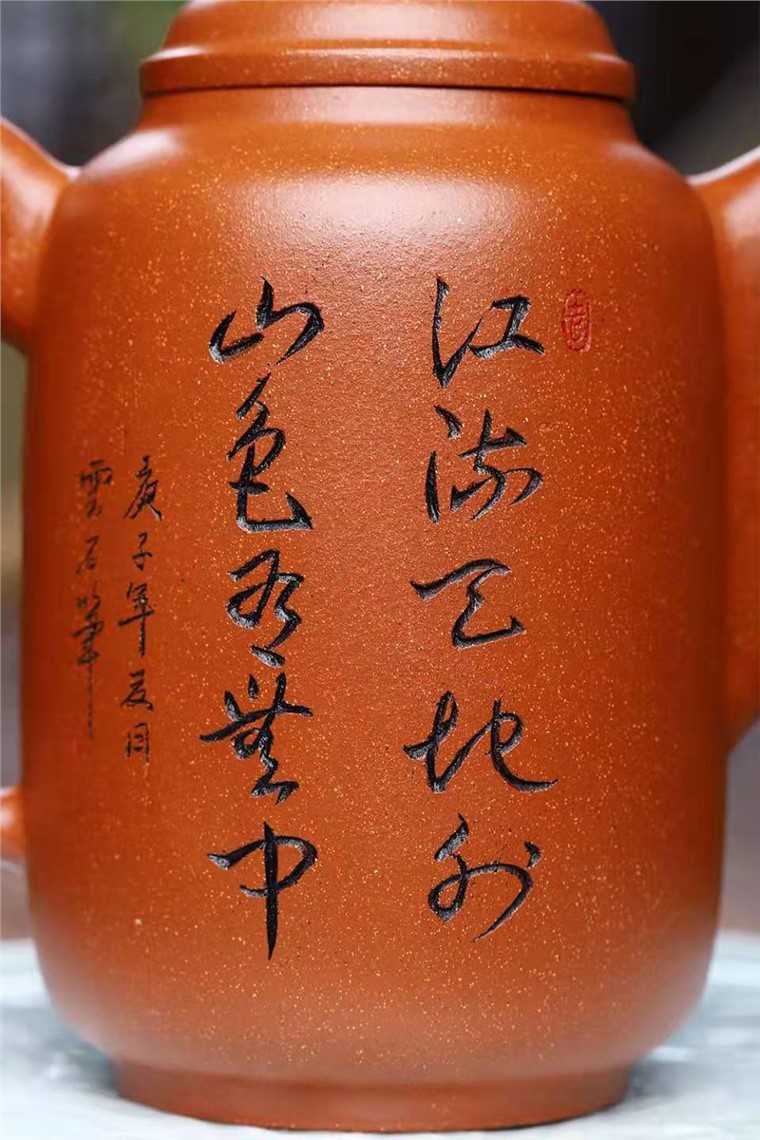 江流天地外
山色有無中
庚子年夏月
雲石筆